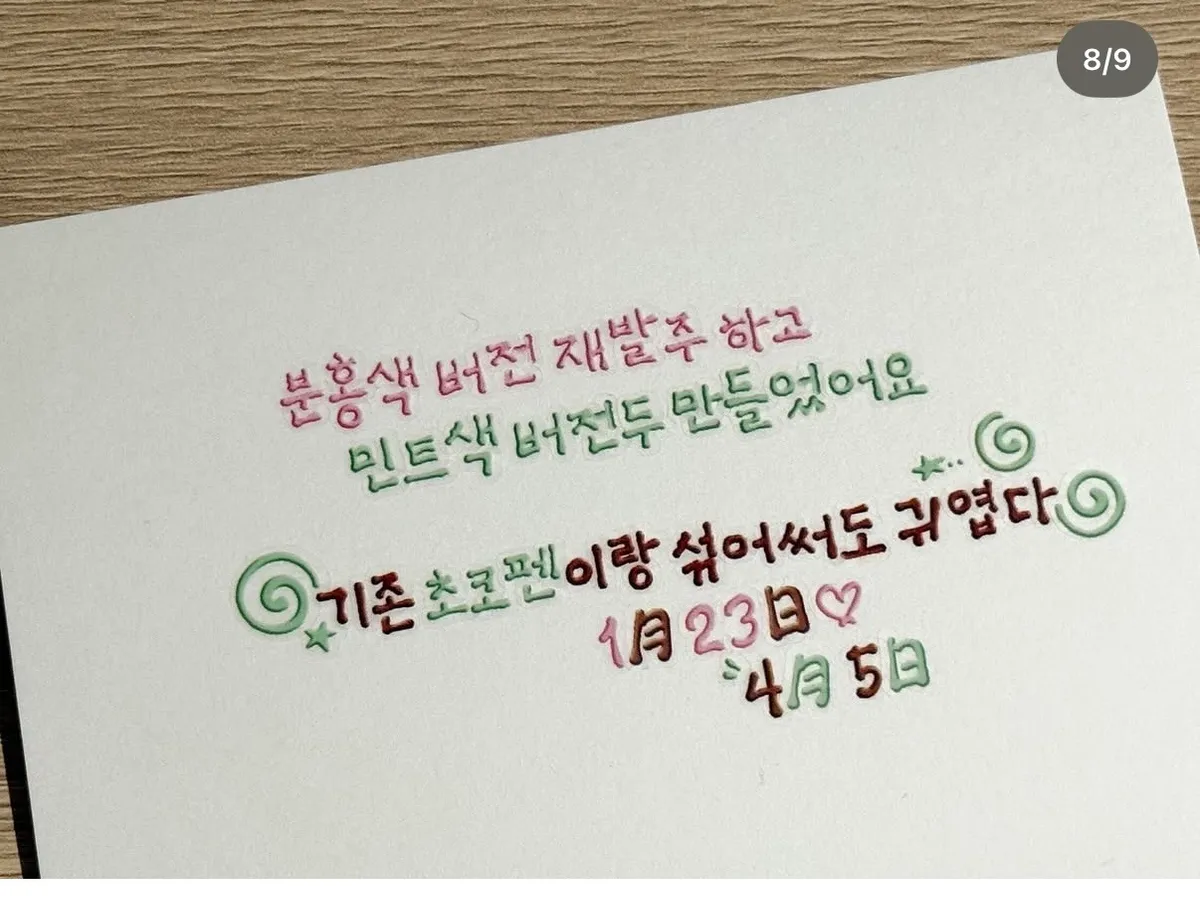 8/9
분홍색 버전 재발주 하고
민트색 버전두 만들었어요
기존 초코펜이랑 섞어써도 귀엽다
1月 23日♡
4月 5日